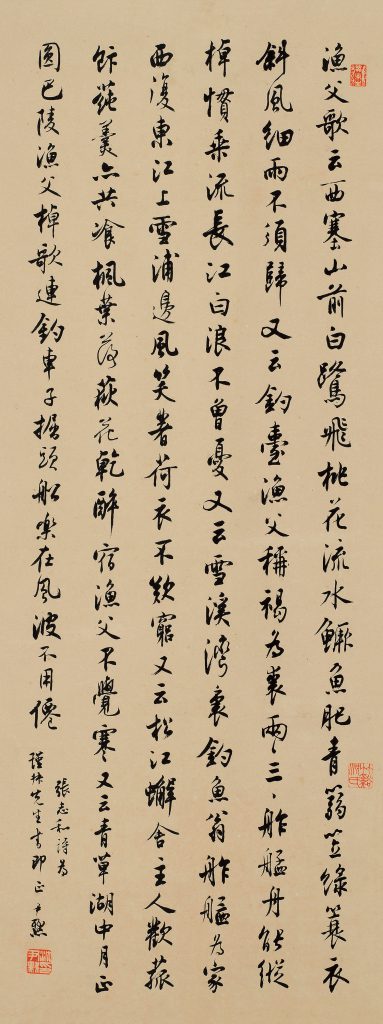 渔父歌云西塞山前白鷺飛桃花流水鱖魚肥青篛笠綠簑衣
斜風細雨不須歸又云釣臺漁父褐為裘兩兩三三舴艋舟能縱
棹慣乘流長江白浪不曾憂又云雪溪灣裏釣魚翁舴艋為家
西復東江上雪浦邊風笑著荷衣不歎窮又云松江蠏舍主人歡菰
飯蓴羹亦共飡楓葉落荻花乾醉宿漁父不覺寒又云青草湖中月正
圓巴陵漁父棹歌連釣車子掘頭船樂在風波不用僊
張志和詩為
先生書即正尹默